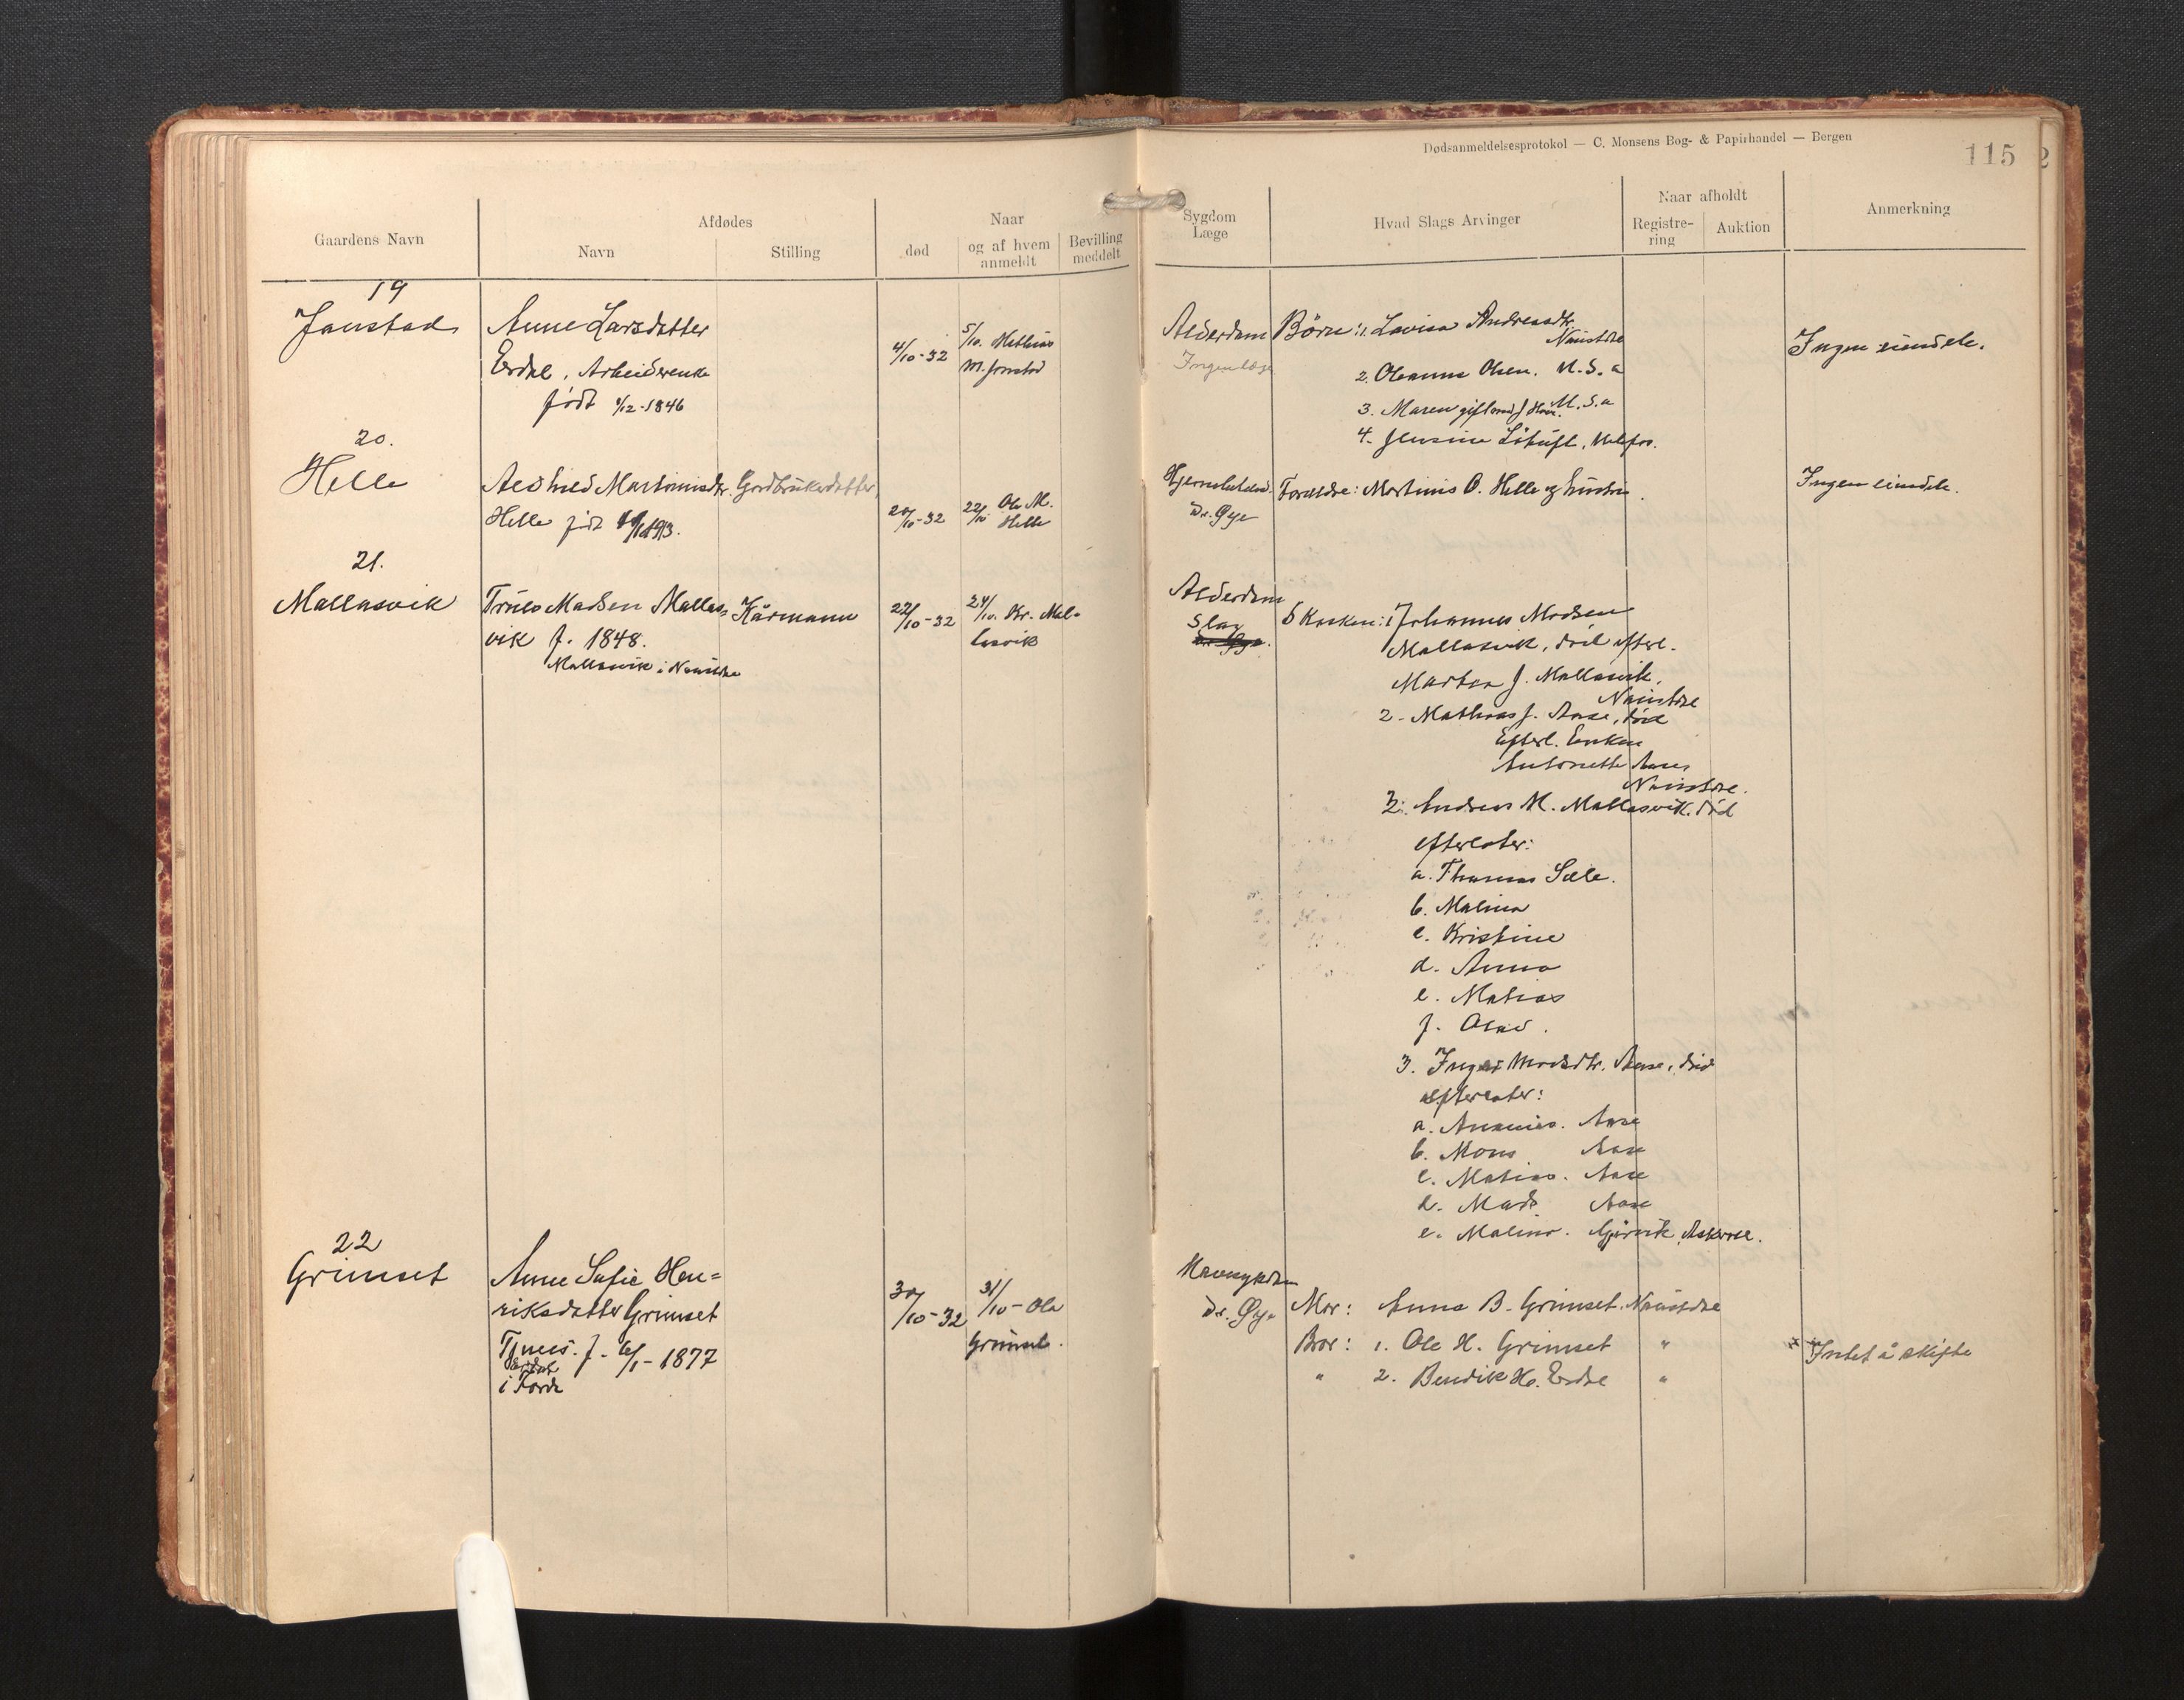 Dødsanmeldelsesprotokol — C. Monsens Bog- & Papirhandel — Bergen
115
Gaardens Navn
Afdødes
Navn
Stilling
Naar
død
og af hvem anmeldt
Bevilling meddelt
Sygdom
Læge
Hvad Slags Arvinger
Naar afholdt
Registrering
Auktion
Anmerkning
19
Jonstad
Anne Larsdatter
Erdal, Arbeiderenke
født 1/12-1846
4/10-32
5/10. Mathias
M. Jonstad
Alderdom
Ingen læge
Børn: 1. Lovisa Andreasdtr.
Naustdal
2. Oleanna Olsen. U.S.a
3. Maren gift U.S.a
4. Jensine
Ingen eiendele.
20.
Helle
Martinusdtr. Gardbrukerdatter
Helle født
20/10-32
22/10 Ole M.
Helle
Dr. Øye
Foreldre: Martinus O. Helle og hustru.
Ingen eiendele.
21.
Mallasvik
Truls Madsen Mallas-
vik f. 1848.
Mallasvik i Naustdal
Kårmann
22/10-32
24/10. Kr. Mal-
lasvik
Alderdom
Slag
Søsken: 1 Johannes Madsen
Mallasvik, død efterl.
Marta J. Mallasvik,
Naustdal
2. Mathias J. Aase, død
Efterl. Enken
Antonette Aase,
Naustdal.
2. Andreas M. Mallasvik. død
efterlater:
a. Thomas Sæle.
b. Malina
c. Kristine
d. Anna
e. Matias
f. Olav.
3. Inger Madsdtr. Aase, død
efterlater:
a. Ananias. Aase
b. Mons Aase
c. Matias. Aase
d. Mads Aase
e. Malina. Gjørvik, Askvoll.
22
Grimset
Anne Sofie Hen-
riksdatter Grimset
f. 6/1-1877
Erdal
i Førde
30/10-32
31/10 - Ola
Grimset.
Mavesykdom
Dr. Øye
Mor: Anna B. Grimset. Naustdal
Bror: 1. Ole H. Grimset "
" 2. Bendik H. Erdal "
Intet å skifte